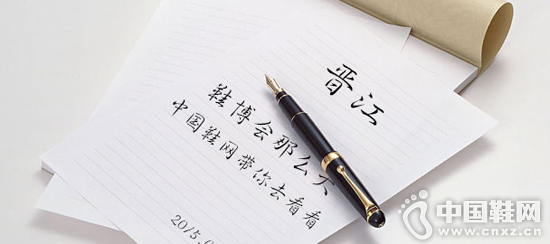 晋江
鞋博会那么大
中国鞋网带你去看看
2015.0
中国鞋网
www.cnxz.cn